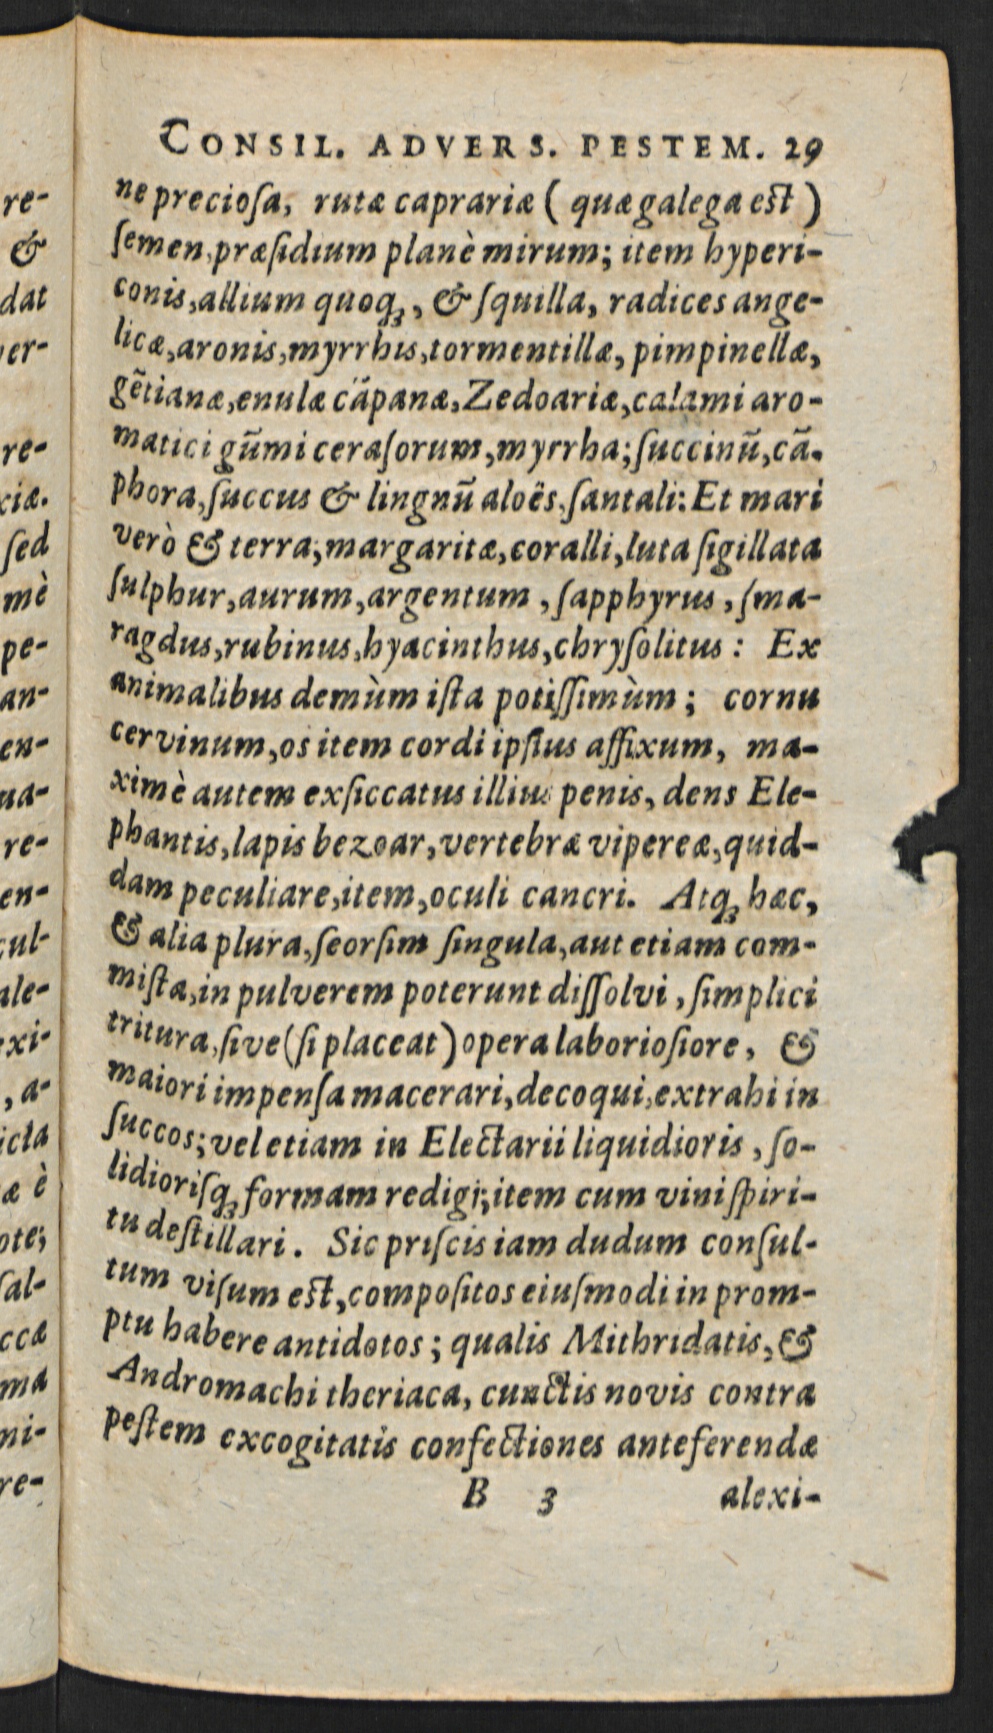 CONSIL. ADVERS. PESTEM. 29
ne precioſa, rutæ caprariæ ( quæ galega est )
ſemen, præſidium planè mirum; item hyperi-
conis, allium quoq₃, & ſquilla, radices ange-
licæ, aronis, myrrhis, tormentillæ, pimpinellæ,
gẽtianæ, enulæ cãpanæ, Zedoariæ, calami aro-
matici gũmi ceraſorum, myrrha; ſuccinũ, cã.
phora, ſuccus & lingnũ aloës, ſantali: Et mari
verò & terra; margaritæ, coralli, luta ſigillata
ſulphur, aurum, argentum, ſapphyrus, ſma-
ragdus, rubinus, hyacinthus, chryſolitus: Ex
animalibus demùm iſta potiſſimùm; cornu
cervinum, os item cordi ipſius affixum, ma-
ximè autem exſiccatus illius penis, dens Ele-
phantis, lapis bezoar, vertebræ vipereæ, quid-
dam peculiare, item, oculi cancri. Atq₃ hæc,
& alia plura, ſeorſim ſingula, aut etiam com-
miſta, in pulverem poterunt diſſolvi, ſimplici
tritura, ſive (ſi placeat) opera laborioſiore, &
maiori impenſa macerari, decoqui, extrahi in
ſuccos; vel etiam in Electarii liquidioris, ſo-
lidioriſq₃ formam redigi; item cum vini ſpiri-
tu deſtillari. Sic priſcis iam dudum conſul-
tum viſum est, compoſitos eiuſmodi in prom-
ptu habere antidotos; qualis Mithridatis, &
Andromachi theriaca, cunctis novis contra
peſtem excogitatis confectiones anteferendæ
B 3 alexi-
re-
&
dat
ver-
re-
xiæ.
ſed
mè
pe-
an-
en-
ua-
re-
en-
cul-
ale-
exi-
, a-
icta
æ è
ote;
ſal-
ccæ
ma
mi-
re-